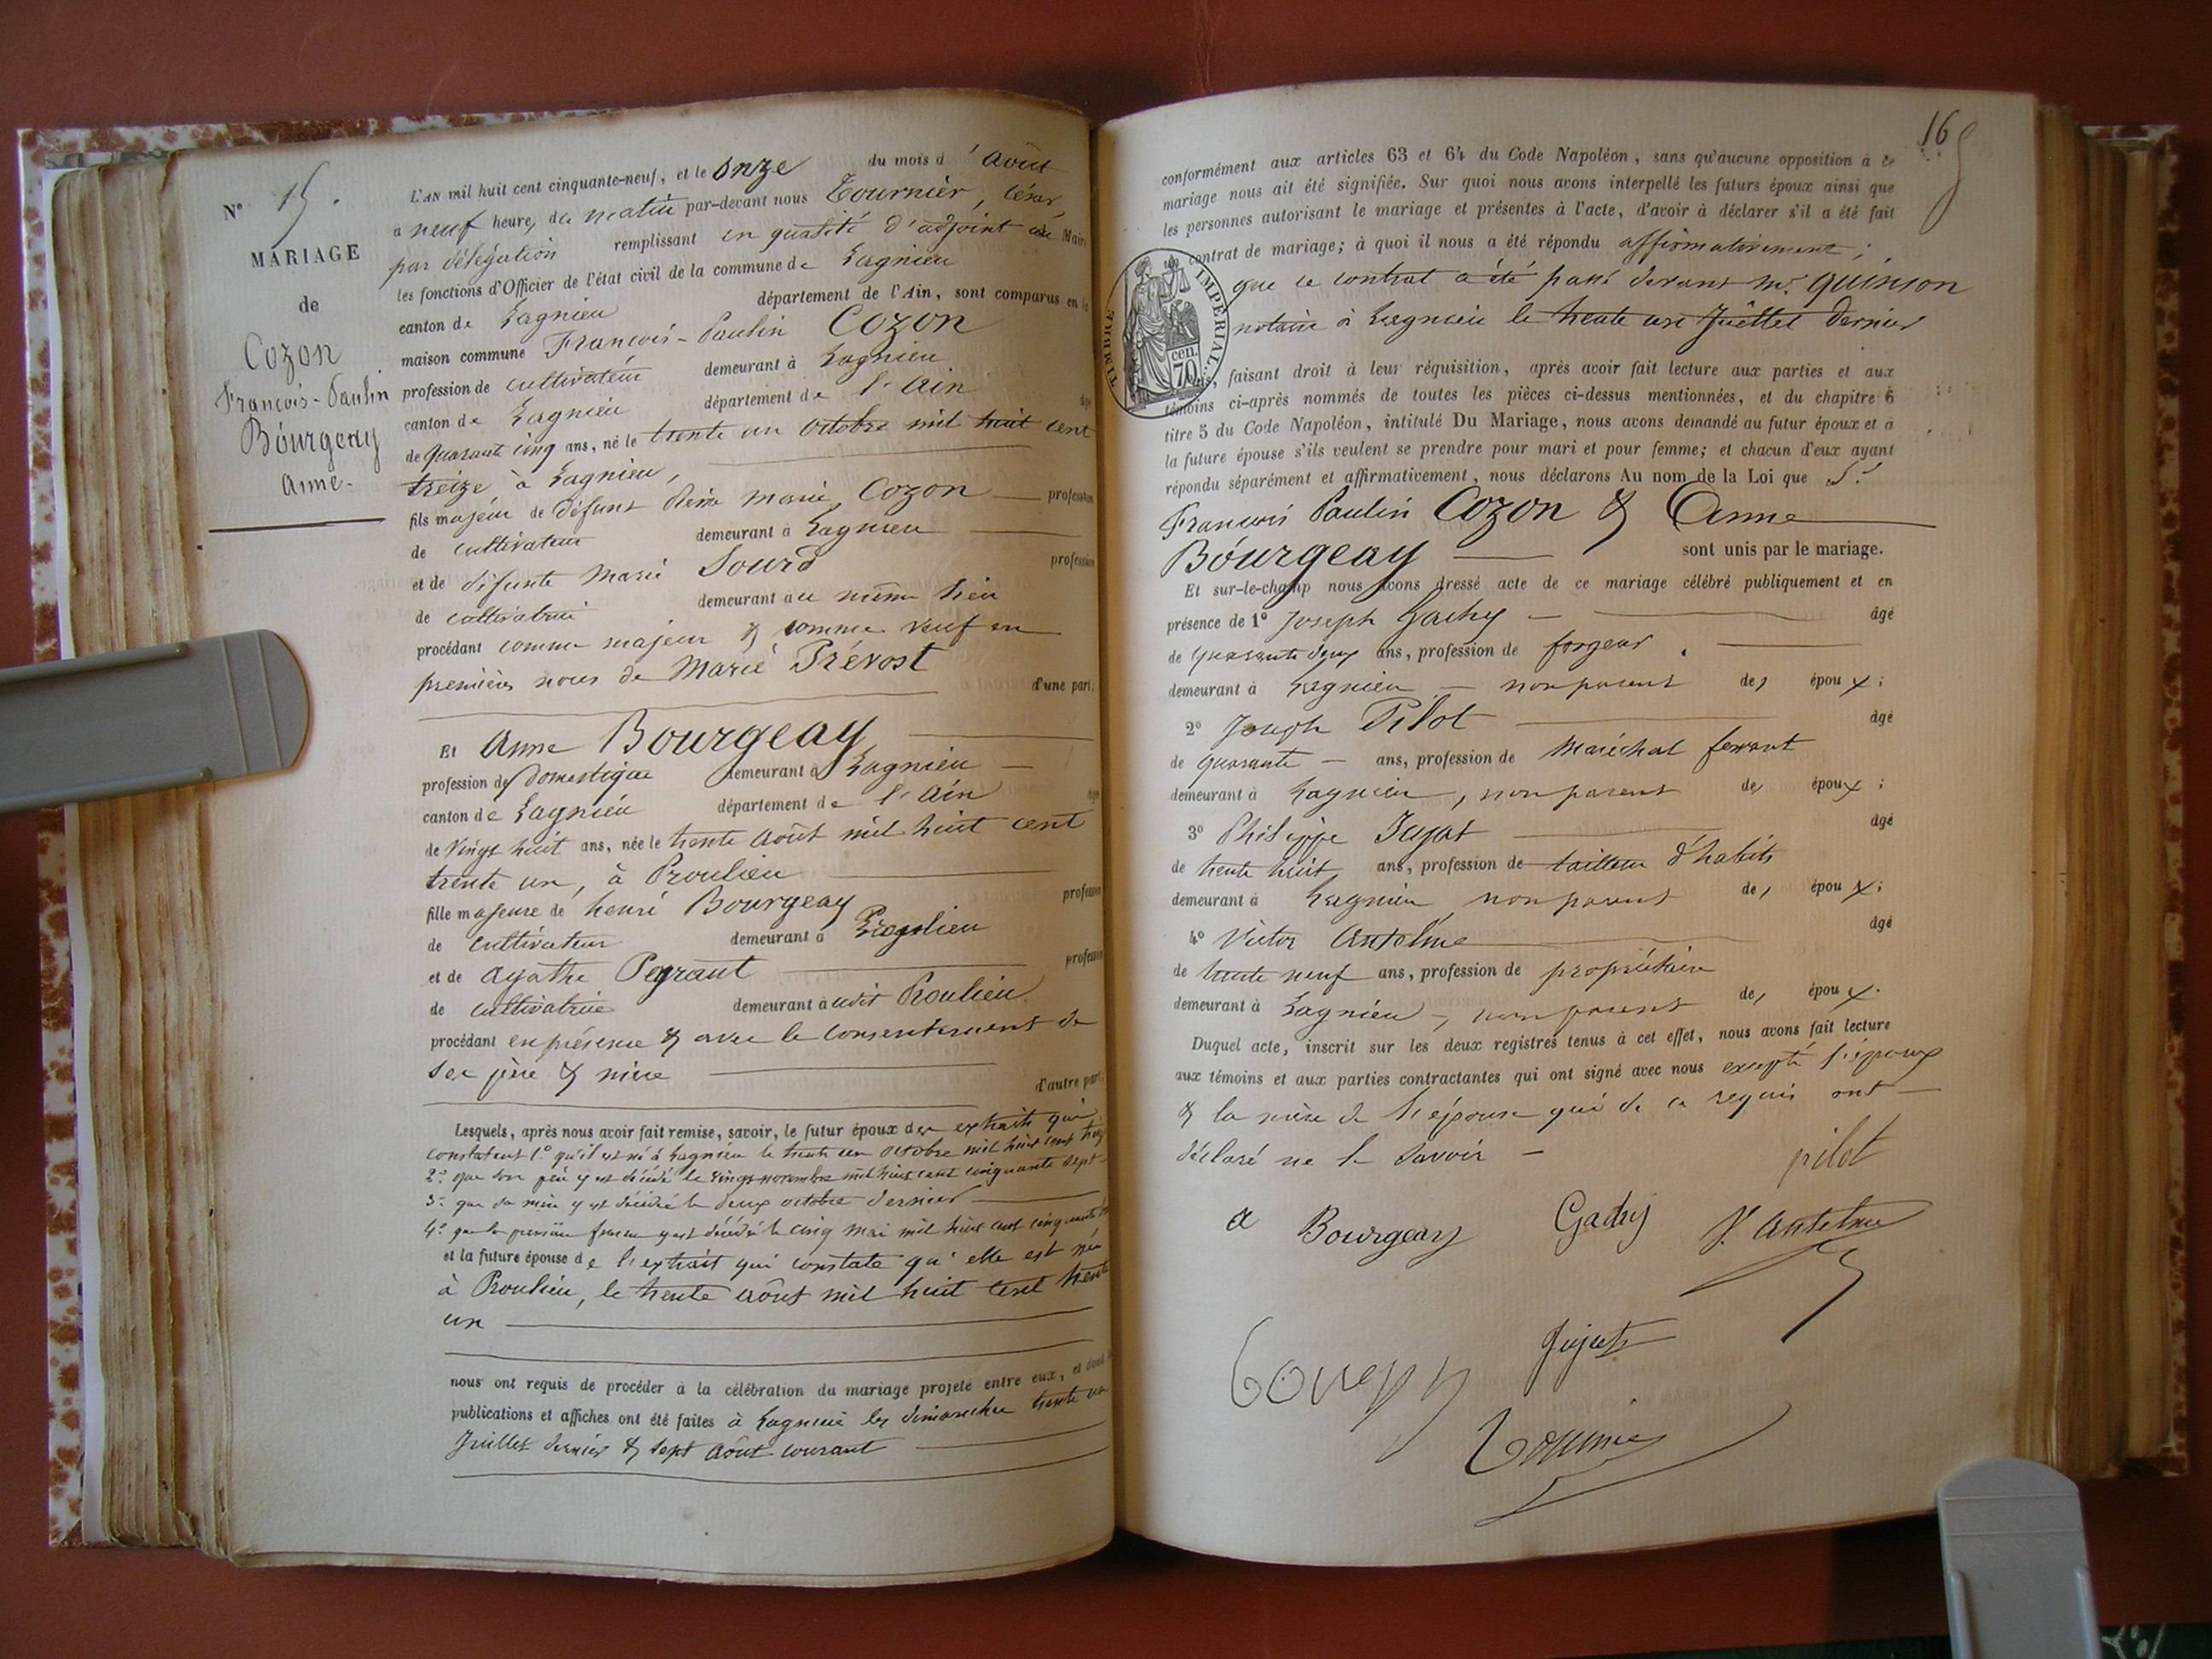 N° 15.
MARIAGE
de
Cozon
François-Paulin
Bourgeay
Anne-
L'AN mil huit cent cinquante-neuf, et le onze du mois d'Août
à neuf heures du matin par-devant nous Tournier, César,
par délégation remplissant en qualité d'adjoint au Maire
les fonctions d'Officier de l'état civil de la commune de Lagnieu
canton de Lagnieu département de l'Ain, sont comparus en la
maison commune François-Paulin Cozon
profession de cultivateur demeurant à Lagnieu
canton de Lagnieu département de l'Ain âgé
de quarante cinq ans, né le trente un octobre mil huit cent
treize à Lagnieu,
fils majeur de défunt Marie Cozon profession
de cultivateur demeurant à Lagnieu
et de défunte Marie Sourd profession
de cultivatrice demeurant au même lieu
procédant comme majeur & comme veuf en
premières noces de Marie Prévost
d'une part,
Et Anne Bourgeay
profession de domestique demeurant à Lagnieu
canton de Lagnieu département de l'Ain âgé
de vingt huit ans, née le trente août mil huit cent
trente un, à Proulieu
fille majeure de henri Bourgeay profession
de cultivateur demeurant à Proulieu
et de agathe Peyraut profession
de cultivatrice demeurant à udit Proulieu
procédant en présence & avec le consentement de
ses père & mère
d'autre part.
Lesquels, après nous avoir fait remise, savoir, le futur époux des extraits qui
constatent 1° qu'il est né à Lagnieu le trente un octobre mil huit cent treize
2° que son père y est décédé le vingt novembre mil huit cent cinquante sept
3° que sa mère y est décédée le deux octobre dernier
4° que sa première femme y est décédée le cinq mai mil huit cent cinquante
et la future épouse de l'extrait qui constate qu'elle est née
à Proulieu, le trente août mil huit cent trente
un
nous ont requis de procéder à la célébration du mariage projeté entre eux, et dont les
publications et affiches ont été faites à Lagnieu les dimanches trente un
Juillet dernier & sept août courant
16
conformément aux articles 63 et 64 du Code Napoléon, sans qu'aucune opposition à ce
mariage nous ait été signifiée. Sur quoi nous avons interpellé les futurs époux ainsi que
les personnes autorisant le mariage et présentes à l'acte, d'avoir à déclarer s'il a été fait
un contrat de mariage; à quoi il nous a été répondu affirmativement;
que ce contrat a été passé devant me Quinson
notaire à Lagnieu le trente un Juillet dernier
TIMBRE IMPÉRIAL.
70 cen.
faisant droit à leur réquisition, après avoir fait lecture aux parties et aux
témoins ci-après nommés de toutes les pièces ci-dessus mentionnées, et du chapitre 6
titre 5 du Code Napoléon, intitulé Du Mariage, nous avons demandé au futur époux et à
la future épouse s'ils veulent se prendre pour mari et pour femme; et chacun d'eux ayant
répondu séparément et affirmativement, nous déclarons Au nom de la Loi que Sr
François Paulin Cozon & Anne
Bourgeay sont unis par le mariage.
Et sur-le-champ nous avons dressé acte de ce mariage célébré publiquement et en
présence de 1° Joseph Gachy âgé
de quarante deux ans, profession de forgeur
demeurant à Lagnieu non parent des époux;
2° Joseph Pilot âgé
de quarante ans, profession de maréchal ferrant
demeurant à Lagnieu, non parent des époux;
3° Philippe Jujat âgé
de trente huit ans, profession de tailleur d'habits
demeurant à Lagnieu non parent des époux;
4° Victor Antelme âgé
de trente neuf ans, profession de propriétaire
demeurant à Lagnieu, non parent des époux.
Duquel acte, inscrit sur les deux registres tenus à cet effet, nous avons fait lecture
aux témoins et aux parties contractantes qui ont signé avec nous excepté l'époux
& la mère de l'épouse qui de ce requis ont
déclaré ne le savoir
pilot
a Bourgeay Gachy V. Antelme
Jujat
Tournier